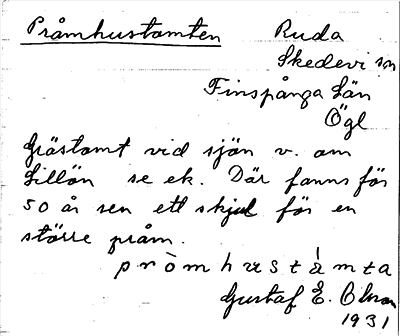 Pråmhustomten Ruda
Skedevi sn
Finspånga Län
Ögl
Grästomt vid sjön v. om
Lillön se ek. Där fanns för
50 år sen ett skjul för en
större pråm.
pròmhuståmta
Gustaf E. Olson
1931